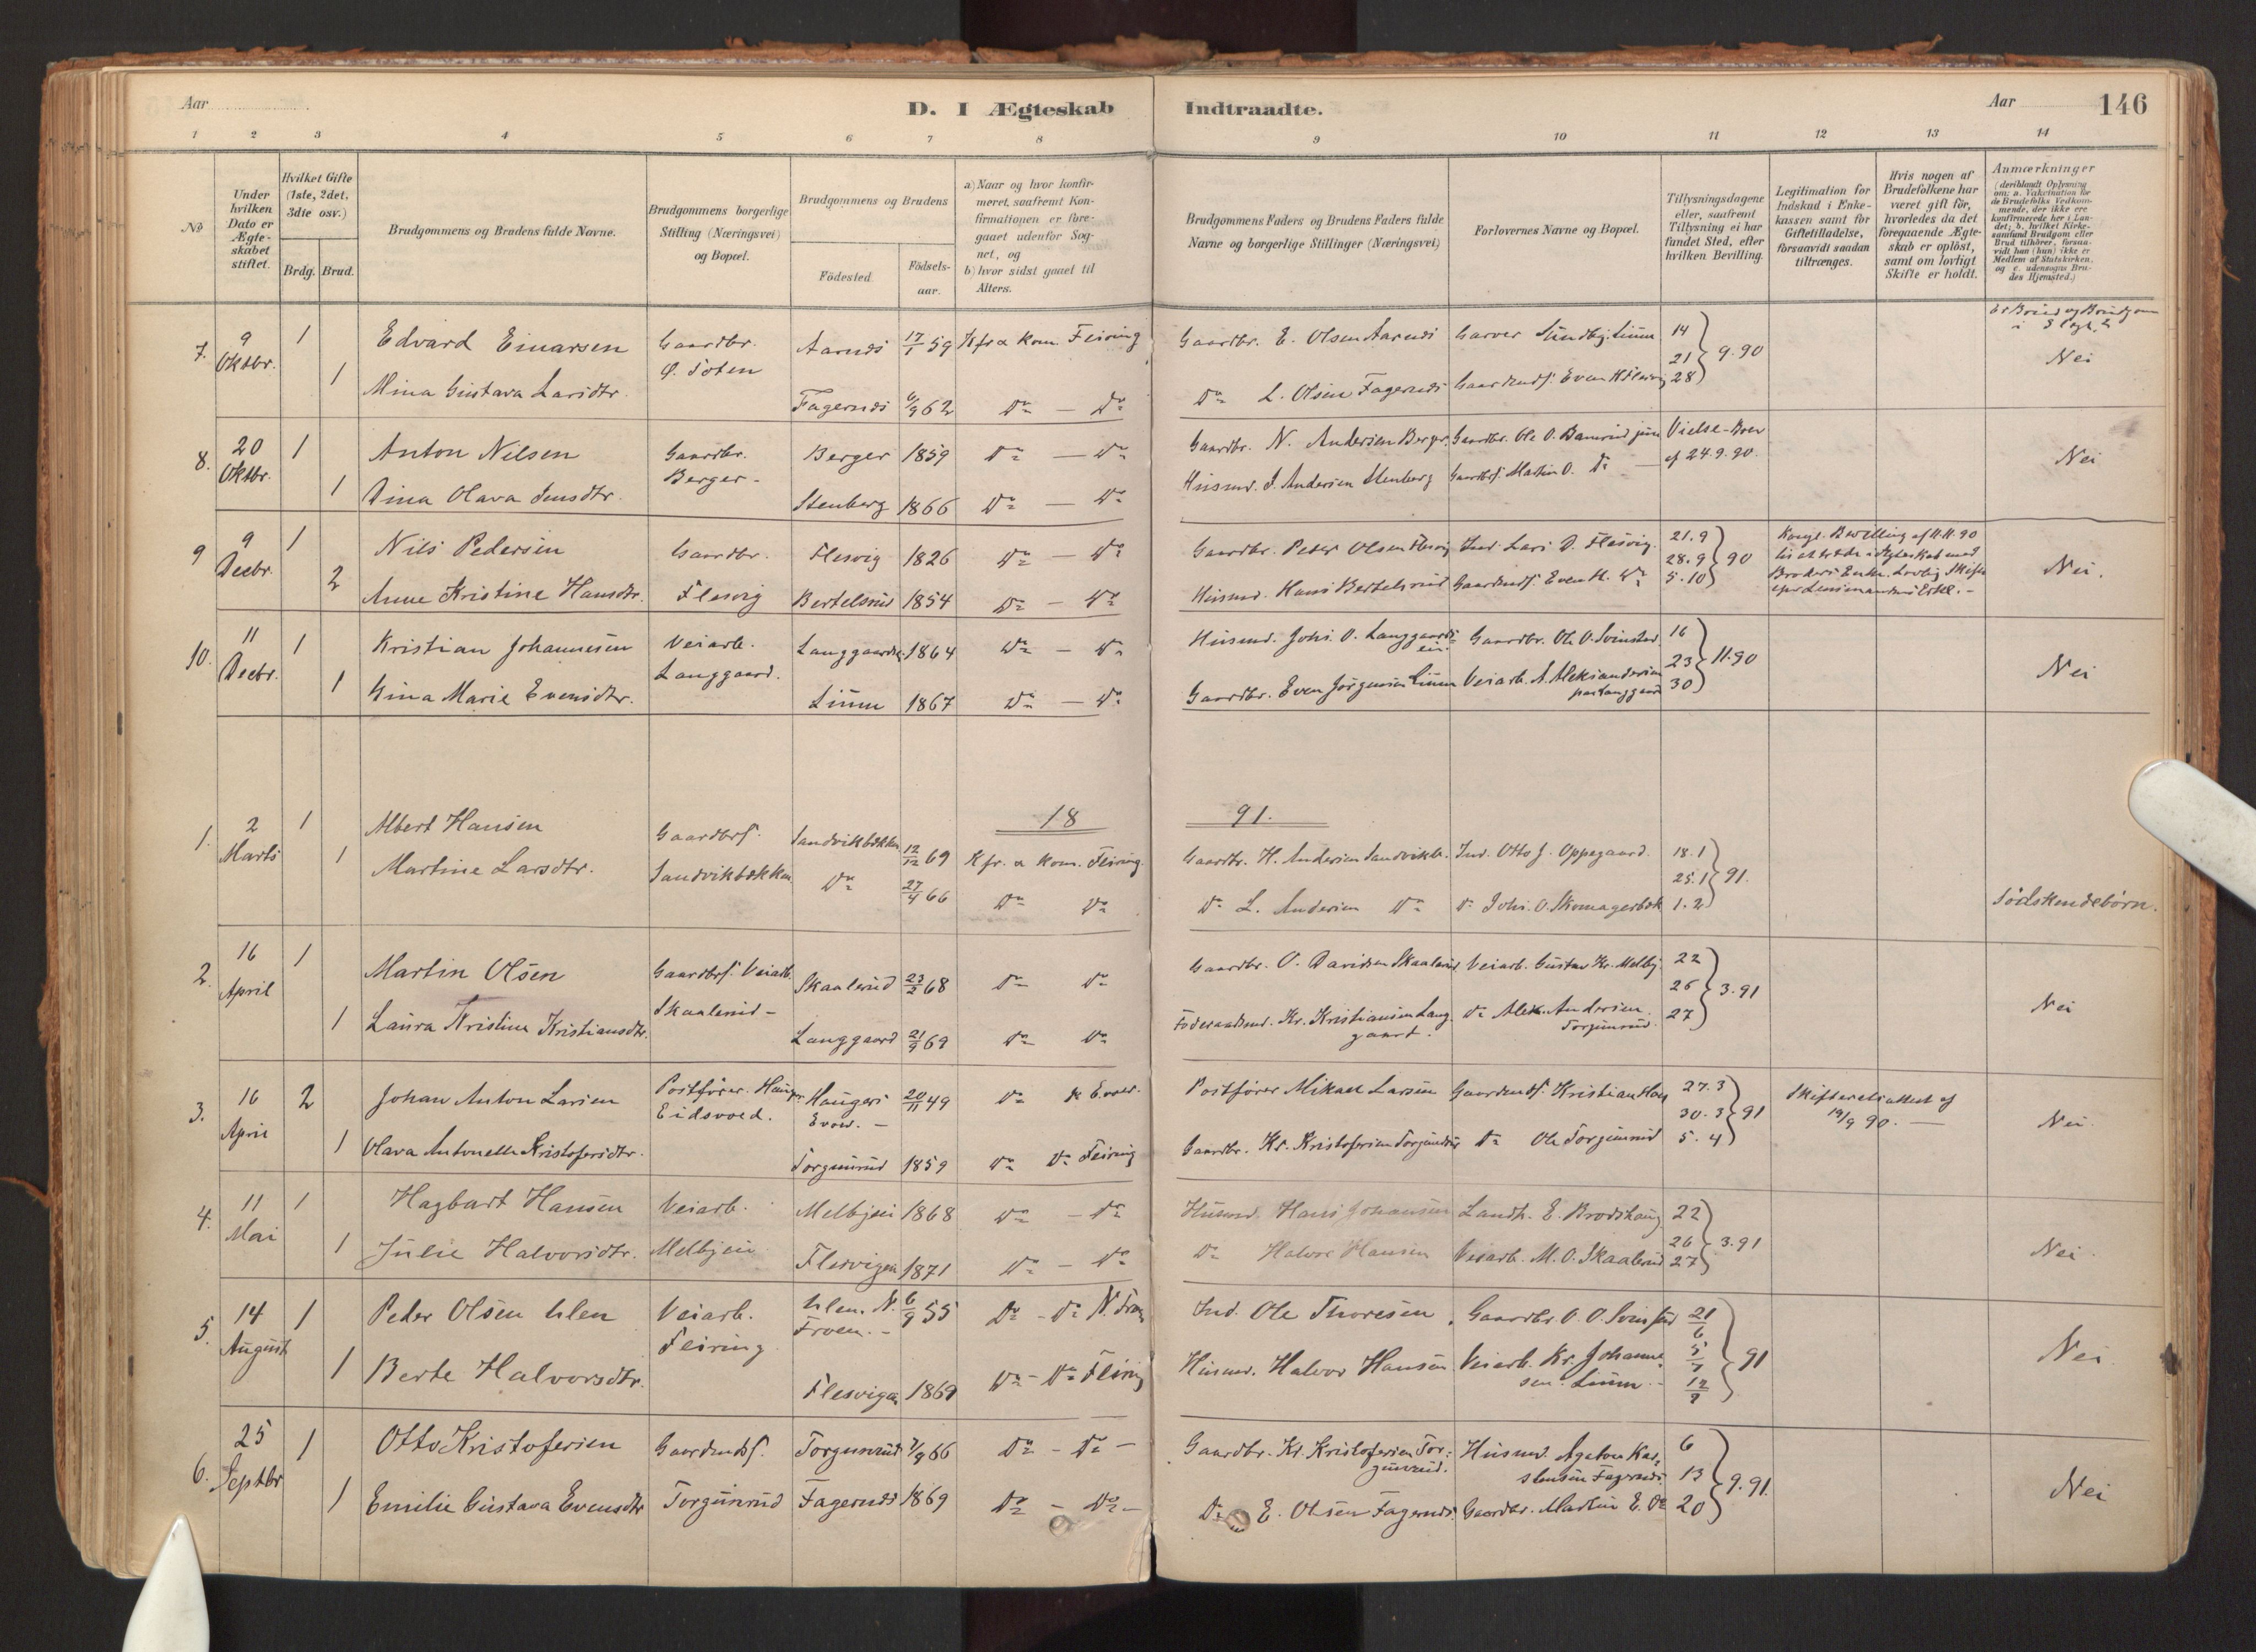 Aar
D. I Ægteskab Indtraadte.
Aar 146
1 2 3 4 5 6 7 8 9 10 11 12 13 14
No
Under hvilken Dato er Ægteskabet stiftet.
Hvilket Gifte (1ste, 2det, 3die osv.)
Brdg. Brud.
Brudgommens og Brudens fulde Navne.
Brudgommens borgerlige Stilling (Næringsvei) og Bopæl.
Brudgommens og Brudens
Födested.
Födselsaar.
a) Naar og hvor konfirmeret, saafremt Konfirmationen er foregaaet udenfor Sognet, og
b) hvor sidst gaaet til Alters.
Brudgommens Faders og Brudens Faders fulde Navne og borgerlige Stillinger (Næringsvei)
Forlovernes Navne og Bopæl.
Tillysningsdagene eller, saafremt Tillysning ei har fundet Sted, efter hvilken Bevilling.
Legitimation for Indskud i Enkekassen samt for Giftetilladelse, forsaavidt saadan tiltrænges.
Hvis nogen af Brudefolkene har været gift för, hvorledes da det foregaaende Ægteskab er oplöst, samt om lovligt Skifte er holdt.
Anmærkninger
(deriblandt Oplysning om: a. Vakcination for de Brudefolks Vedkommende, der ikke ere konfirmerede her i Landet; b. hvilket Kirkesamfund Brudgom eller Brud tilhörer, forsaavidt han (hun) ikke er Medlem af Statskirken, og c. udensogns Brudes Hjemsted.)
7. 9 Oktbr. 1 Edvard Einarsen Gaardbr. Ø. Toten Aarnds 17/1 59 Kfr & kom. Feiring Gaardbr. E. Olsen Aarnds Garver Sundby. Linm 14
21 9.90
Nei
1 Mina Gustava Larsdtr. Fagernds 6/9 62 Do — Do Do L. Olsen Fagernds 28
8. 20 Oktbr. 1 Anton Nilsen Gaardbr. Berger - Berger 1859 Do — Do Gaardbr. N. Andersen Berger. Gaardbr. Ole O. Vielse-Brev
af 24.9.90.
Nei
1 Dina Olava Jensdtr. Stenberg 1866 Do — Do Husmd. J. Andersen Stenberg Gaardbrs. Martin O. Do
9 9 Decbr. 1 Nils Pedersen Gaardbr. Flesvig Flesvig 1826 Do — Do Gaardbr. Peder Olsen Flesvig Ind. Lars O. Flesvig. 21.9
28.9 90
Kongl. Bevilling af 11.11.90
Nei.
2 Anne Kristine Hansdtr. Bertelsrud 1854 Do — Do Husmd. Hans Bertelsrud Gaardmds. Even H. Do 5.10
10. 11 Decbr. 1 Kristian Johannesen Veiarb. Langgaard. 1864 Do — Do Husmd. Johs. O. Langgaards- Gaardbr. Ole O. Svinstad 16
eie.
23 11.90
Nei
1 Gina Marie Evensdtr. Linm 1867 Do — Do Gaardbr. Even Jørgensen Linm Veiarb. A. Aleksandersen 30
18 91.
1. 2 Marts 1 Albert Hansen Gaardbrs. Sandvikbækken Sandvikbækken 12/12 69 Kfr. & kom. Feiring. Gaardbr. H. Andersen Sandvikb. Ind. Otto J. Oppegaard. 18.1
25.1 91.
1 Martine Larsdtr. Do 27/4 66 Do Do Do L. Andersen Do Do Johs. O. Skomagerbæk 1.2 Södskendebörn.
2. 16 April 1 Martin Olsen Gaardbrs. Veiarb. Skaalerud - Skaalerud 23/2 68 Do Do Gaardbr. O. Davidsen Skaalerud Veiarb. Gustav Kr. Melby 22
26 3.91
Nei
1 Laura Kristine Kristiansdtr. Langgaard 21/9 69 Do Do Föderaadsmd. Kr. Kristiansen Lang- Do Alek. Andersen 27
gaard. Torgunrud.
3. 16 April 2 Johan Anton Larsen Postförer. Eidsvold. Haugers Evold. - 20/11 49 Do Postförer Mikael Larsen Gaardmds. Kristian 27.3
30.3 91
Skifteretsattest af
19/9 90. —
Nei.
1 Olava Antonette Kristofersdtr. Torgunrud 1859 Do Do Feiring Gaardbr. Kr. Kristofersen Torgunrud Do Ole Torgunrud 5.4
4. 11 Mai 1 Hagbart Hansen Veiarb. Melbyeie Melbyeie 1868 Do — Do Husmd. Hans Johansen Landh. E. Brodshaug 22
26 3.91
Nei.
1 Julie Halvorsdtr. Flesvigen 1871 Do — Do Do Halvor Hansen Veiarb. M. O. Skaalerud 27
5. 14 August 1 Peder Olsen Ulen Veiarb. Feiring Ulen. N. Froen. - 6/9 55 Do - Do N. Fron Ind. Ole Thoresen. Gaardbr. O. O. Svinstad 21/6
5/7 91
Nei.
1 Berte Halvorsdtr. Flesvigen 1869 Do - Do Feiring Husmd. Halvor Hansen Veiarb. Kr. Johanne-
sen. Linm. -
6. 25 Septbr 1 Otto Kristofersen Gaardmds. Torgunrud Torgunrud 7/9 66 Do - Do - Gaardbr. Kr. Kristofersen Tor- Husmd. Agaton Kar- 6
gunrud. stensen Fagernds. 13 9.91.
Nei
1 Emilie Gustava Evensdtr Fagernds 1869 Do - Do - Do E. Olsen Fagernds. Gaardbr. Martin E. Do 20